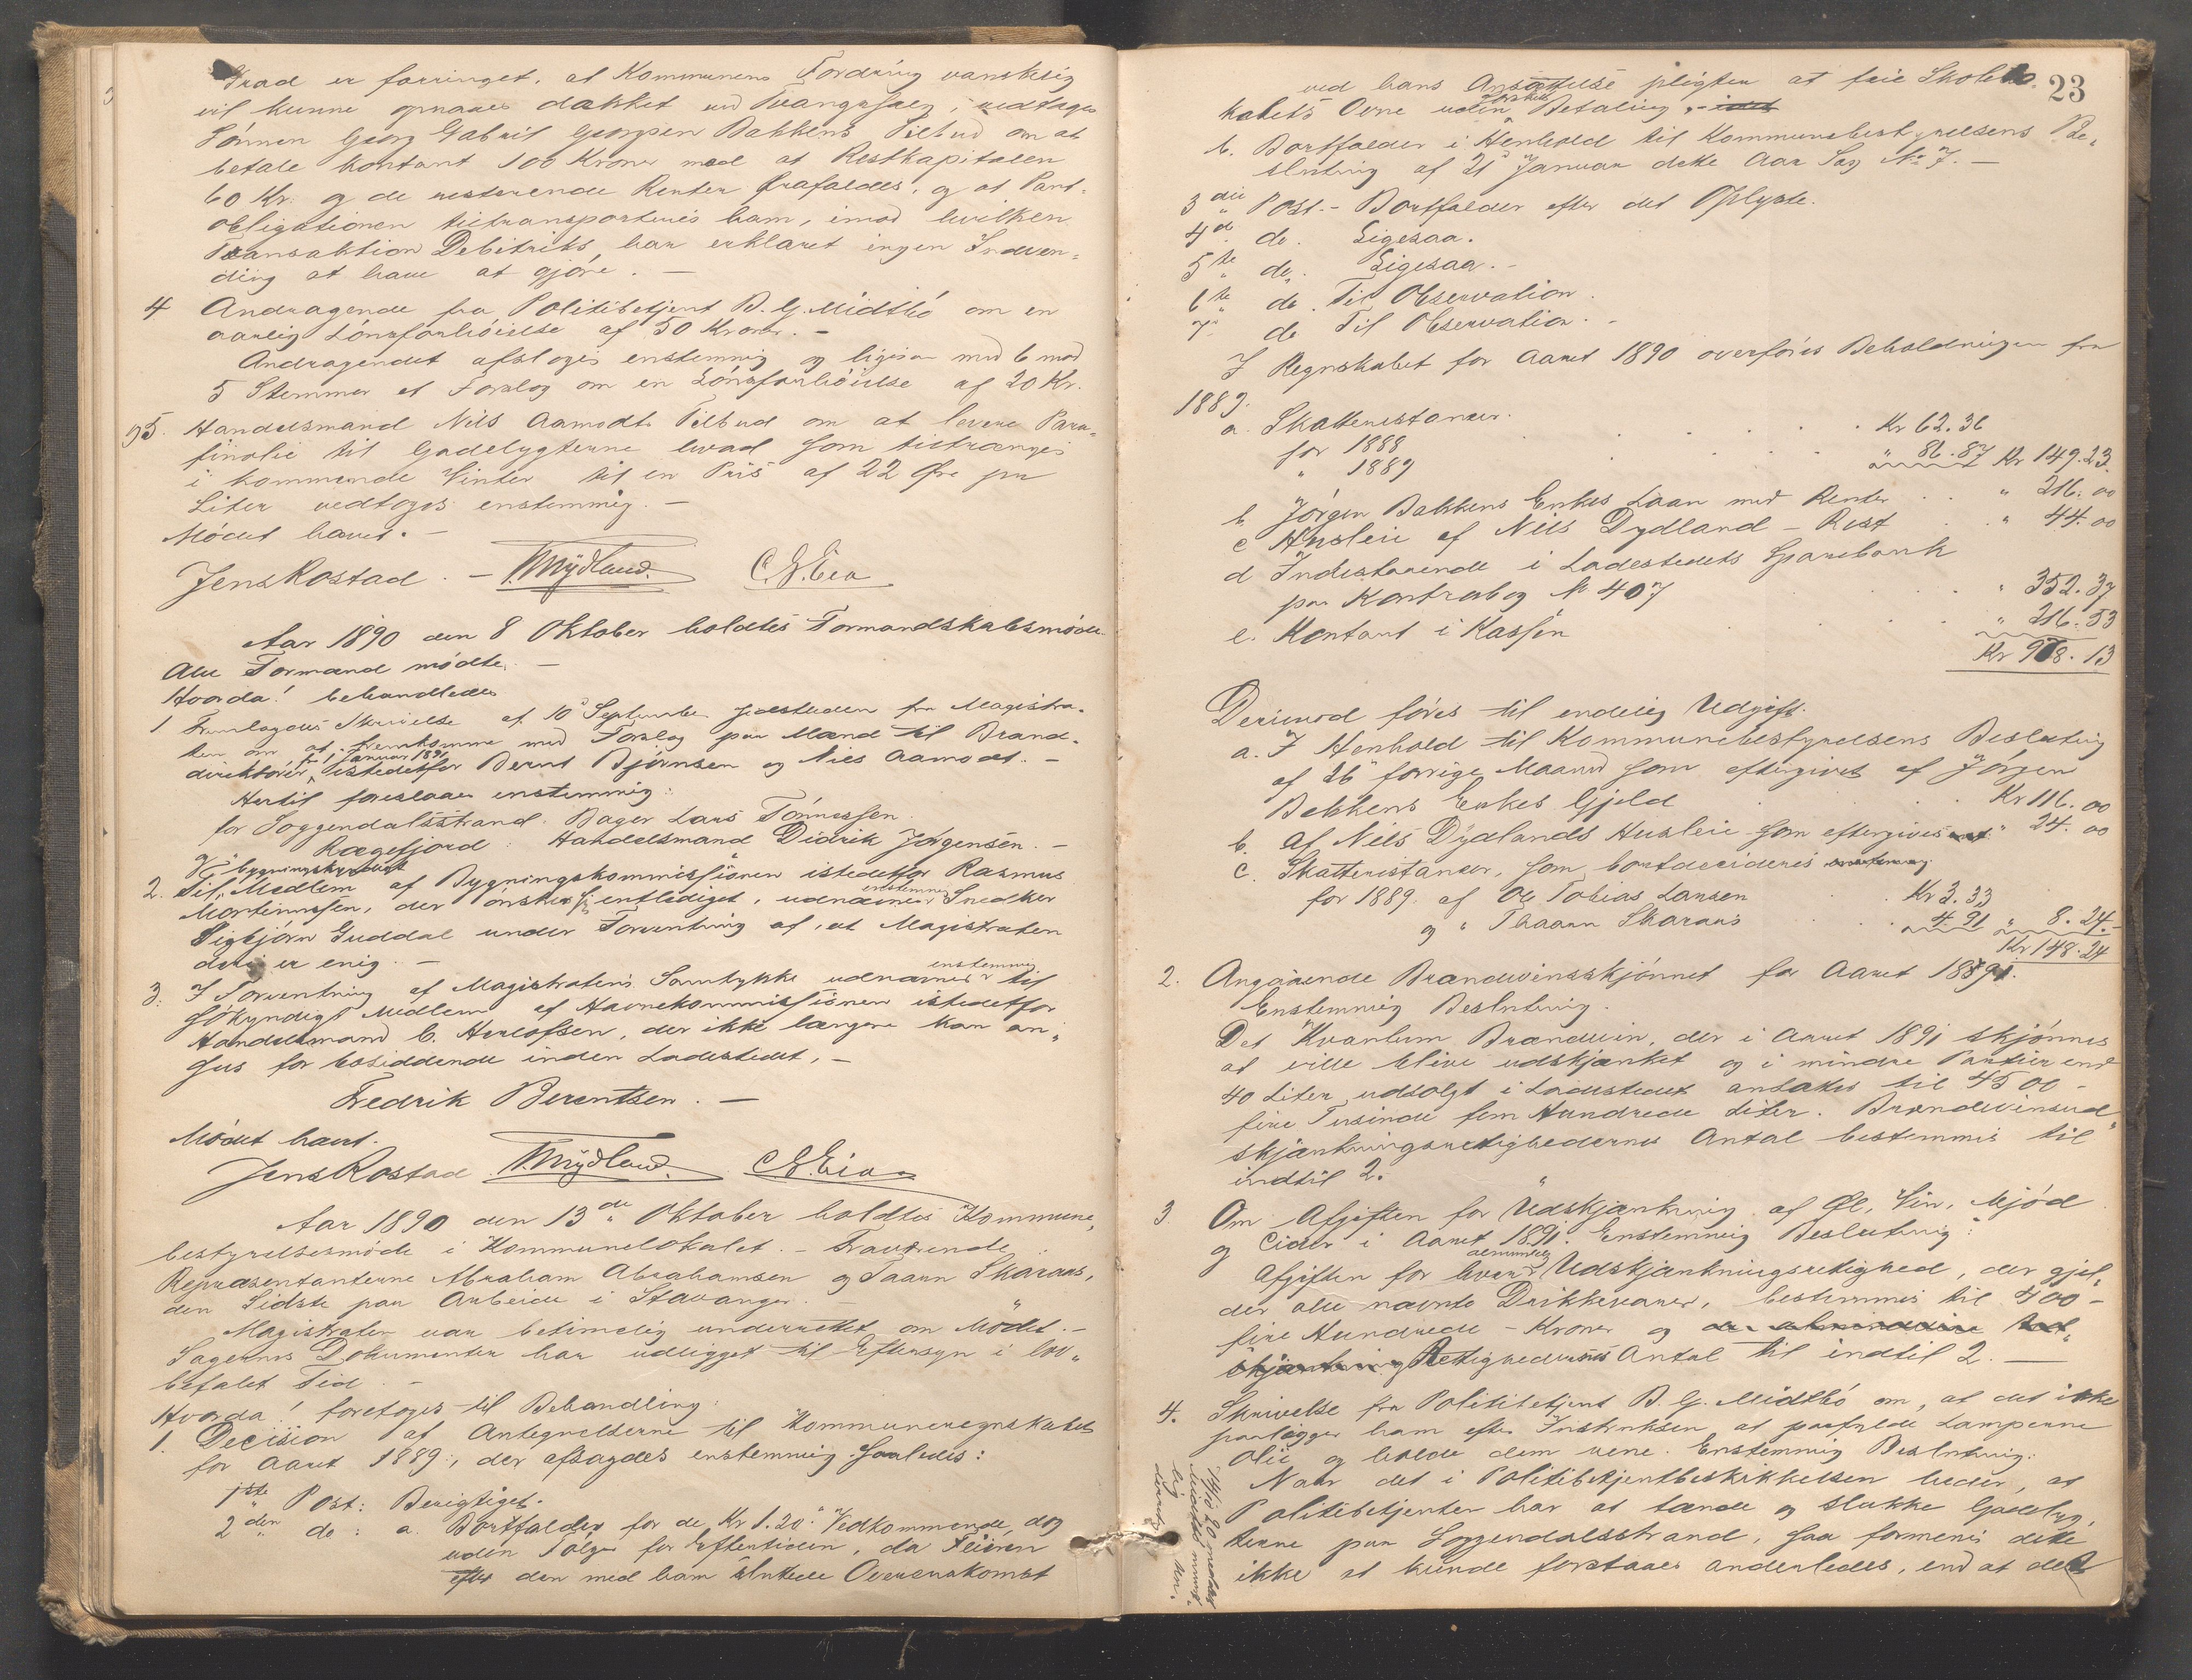 Grad er forringet, at Kommunens Fordring vanskelig
vil kunne opnaaes dækket ved Tvangssalg, vedtoges
Sønnen Georg Gabriel Georgsen Bakkens Tilbud om at
betale kontant 100 Kroner mod at Restkapitalen
60 Kr. og de resterende Renter frafaldes, og at Pant-
obligationen tiltransporteres ham, imod hvilken
Transaktion Debitriks har erklæret ingen Indven-
ding at have at gjøre. —
4 Andragende fra Politibetjent B. G. Midtbö om en
aarlig Lønsforhöielse af 50 Kroner. —
Andragendet afsloges enstemmig og ligesaa med 6 mod
5 Stemmer et Forslag om en Lönsforhöielse af 20 Kr.
5. Handelsmand Nils Aamodts Tilbud om at levere Para-
finolie til Gadelygterne hvad som tiltrænges
i kommende Vinter til en Pris af 22 Øre pr
Liter vedtoges enstemmig. —
Mödet hævet. —
Jens Rostad. — T. Mydland. C. G. Eia
Aar 1890 den 8 Oktober holdtes Formandskabsmöde.
Alle Formænd mödte. —
Hvorda! behandledes
1 Fremlagdes Skrivelse af 10 September sidstleden fra Magistra-
ten om at fremkomme med Forslag paa Mænd til Brand-
direktörer fra 1 Januar 1891 istedetfor Bernt Björnsen og Nils Aamodt. —
Hertil foreslaaes enstemmig:
for Soggendalsstrand Bager Lars Tönnessen.
" Rægefjord: Handelsmand Didrik Jörgensen. —
2. Til bygningskyndigt Medlem af Bygningskommissionen istedetfor Rasmus
Mortinussen, der önskes entlediget, udnævnes enstemmig Snedker
Sigbjörn Guddal under Forventning af, at Magistraten
deri er enig. —
3. I Forventning af Magistratens Samtykke udnævnes enstemmig til
Sökyndigt Medlem af Havnekommissionen istedetfor
Handelsmand C. Herlofsen, der ikke længere kan an-
sees for bosiddende inden Ladestedet, —
Fredrik Berentsen. —
Mödet hævet.
Jens Rostad T. Mydland. C. G. Eia
Aar 1890 den 13de Oktober holdtes Kommune-
bestyrelsesmöde i Kommunelokalet. — Fraværende
Repræsentanterne Abraham Abrahamsen og Taann Skaraas,
den Sidste paa Arbeide i Stavanger. —
Magistraten var betimelig underrettet om Mödet. —
Sagernes Dokumenter har udligget til Eftersyn i lov-
befalet Tid. —
Hvorda! foretoges til Behandling:
1. Decision af Antegnelserne til Kommuneregnskabet
for Aaret 1889, der afsagdes enstemmig saaledes:
1ste Post: Berigtiget.
2den do: a. Bortfalder for de Kr 1.20. Vedkommende, dog
uden Fölger for Eftertiden, da Feieren
efter den med ham sluttede Overenskomst
23
ved hans Ansættelse pligter at feie Skolelo-
kalets Ovne uden særskilt Betaling.
b. Bortfalder i Henhold til Kommunebestyrelsens Be-
slutning af 21 Januar dette Aar Sag No 7. —
3die Post. — Bortfalder efter det Oplyste.
4de do. Ligesaa.
5te do. Ligesaa. —
6te do. Til Observation.
7de do Til Observation. —
I Regnskabet for Aaret 1890 overföres Beholdningen fra
1889.
a. Skatterestancer.
for 1888 . . . . Kr 62.36
" 1889 . . . " 86.87 Kr 149.23.
b Jörgen Bakkens Enkes Laan med Renter . . " 216.00
c Husleie af Nils Dydland — Rest . . " 44.00
d Indestaaende i Ladestedets Sparebank
paa Kontrabog No 407 . . . . " 352.37
e. Kontant i Kassen . . . " 216.53
Kr 978.13
Derimod föres til endelig Udgift.
a. I Henhold til Kommunebestyrelsens Beslutning
af 26 forrige Maaned som eftergivet af Jörgen
Bakkens Enkes Gjeld . . . Kr 116.00
b. Af Nils Dydlands Husleie som eftergives " 24.00
c. Skatterestancer, som bortdecideres
for 1889 af Ole Tobias Larsen . . Kr 3.33
og " Thaann Skaraas . . 4.91 " 8.24.
Kr 148.24
2. Angaaende Brændevinsskjönnet for Aaret 1891.
Enstemmig Beslutning.
Det Kvantum Brændevin, der i Aaret 1891 skjönnes
at ville blive udskjænket og i mindre Partier end
40 Liter udsolgt i Ladestedet ansættes til 4500 —
fire Tusinde fem Hundrede Liter. Brændevinsud-
skjænkningsrettighedernes Antal bestemmes til
indtil 2.
3 Om Afgiften for Udskjænkning af Øl, Vin, Mjöd
og Cider i Aaret 1891. Enstemmig Beslutning:
Afgiften for hver almindelig Udskjænkningsrettighed, der gjel-
der alle nævnte Drikkevarer, bestemmes til 400 —
fire Hundrede — Kroner og
Rettighedernes Antal til indtil 2. —
4. Skrivelse fra Politibetjent B. G. Midtbö om, at det ikke
paalægger ham efter Instruksen at paafylde Lamperne
Olie og holde dem rene. Enstemmig Beslutning:
Naar det i Politibetjentbeskikkelsen heder, at
Politibetjenten har at tænde og slukke Gadelyg-
terne paa Soggendalsstrand, saa formenes dette
ikke at kunde forstaaes anderledes, end at det